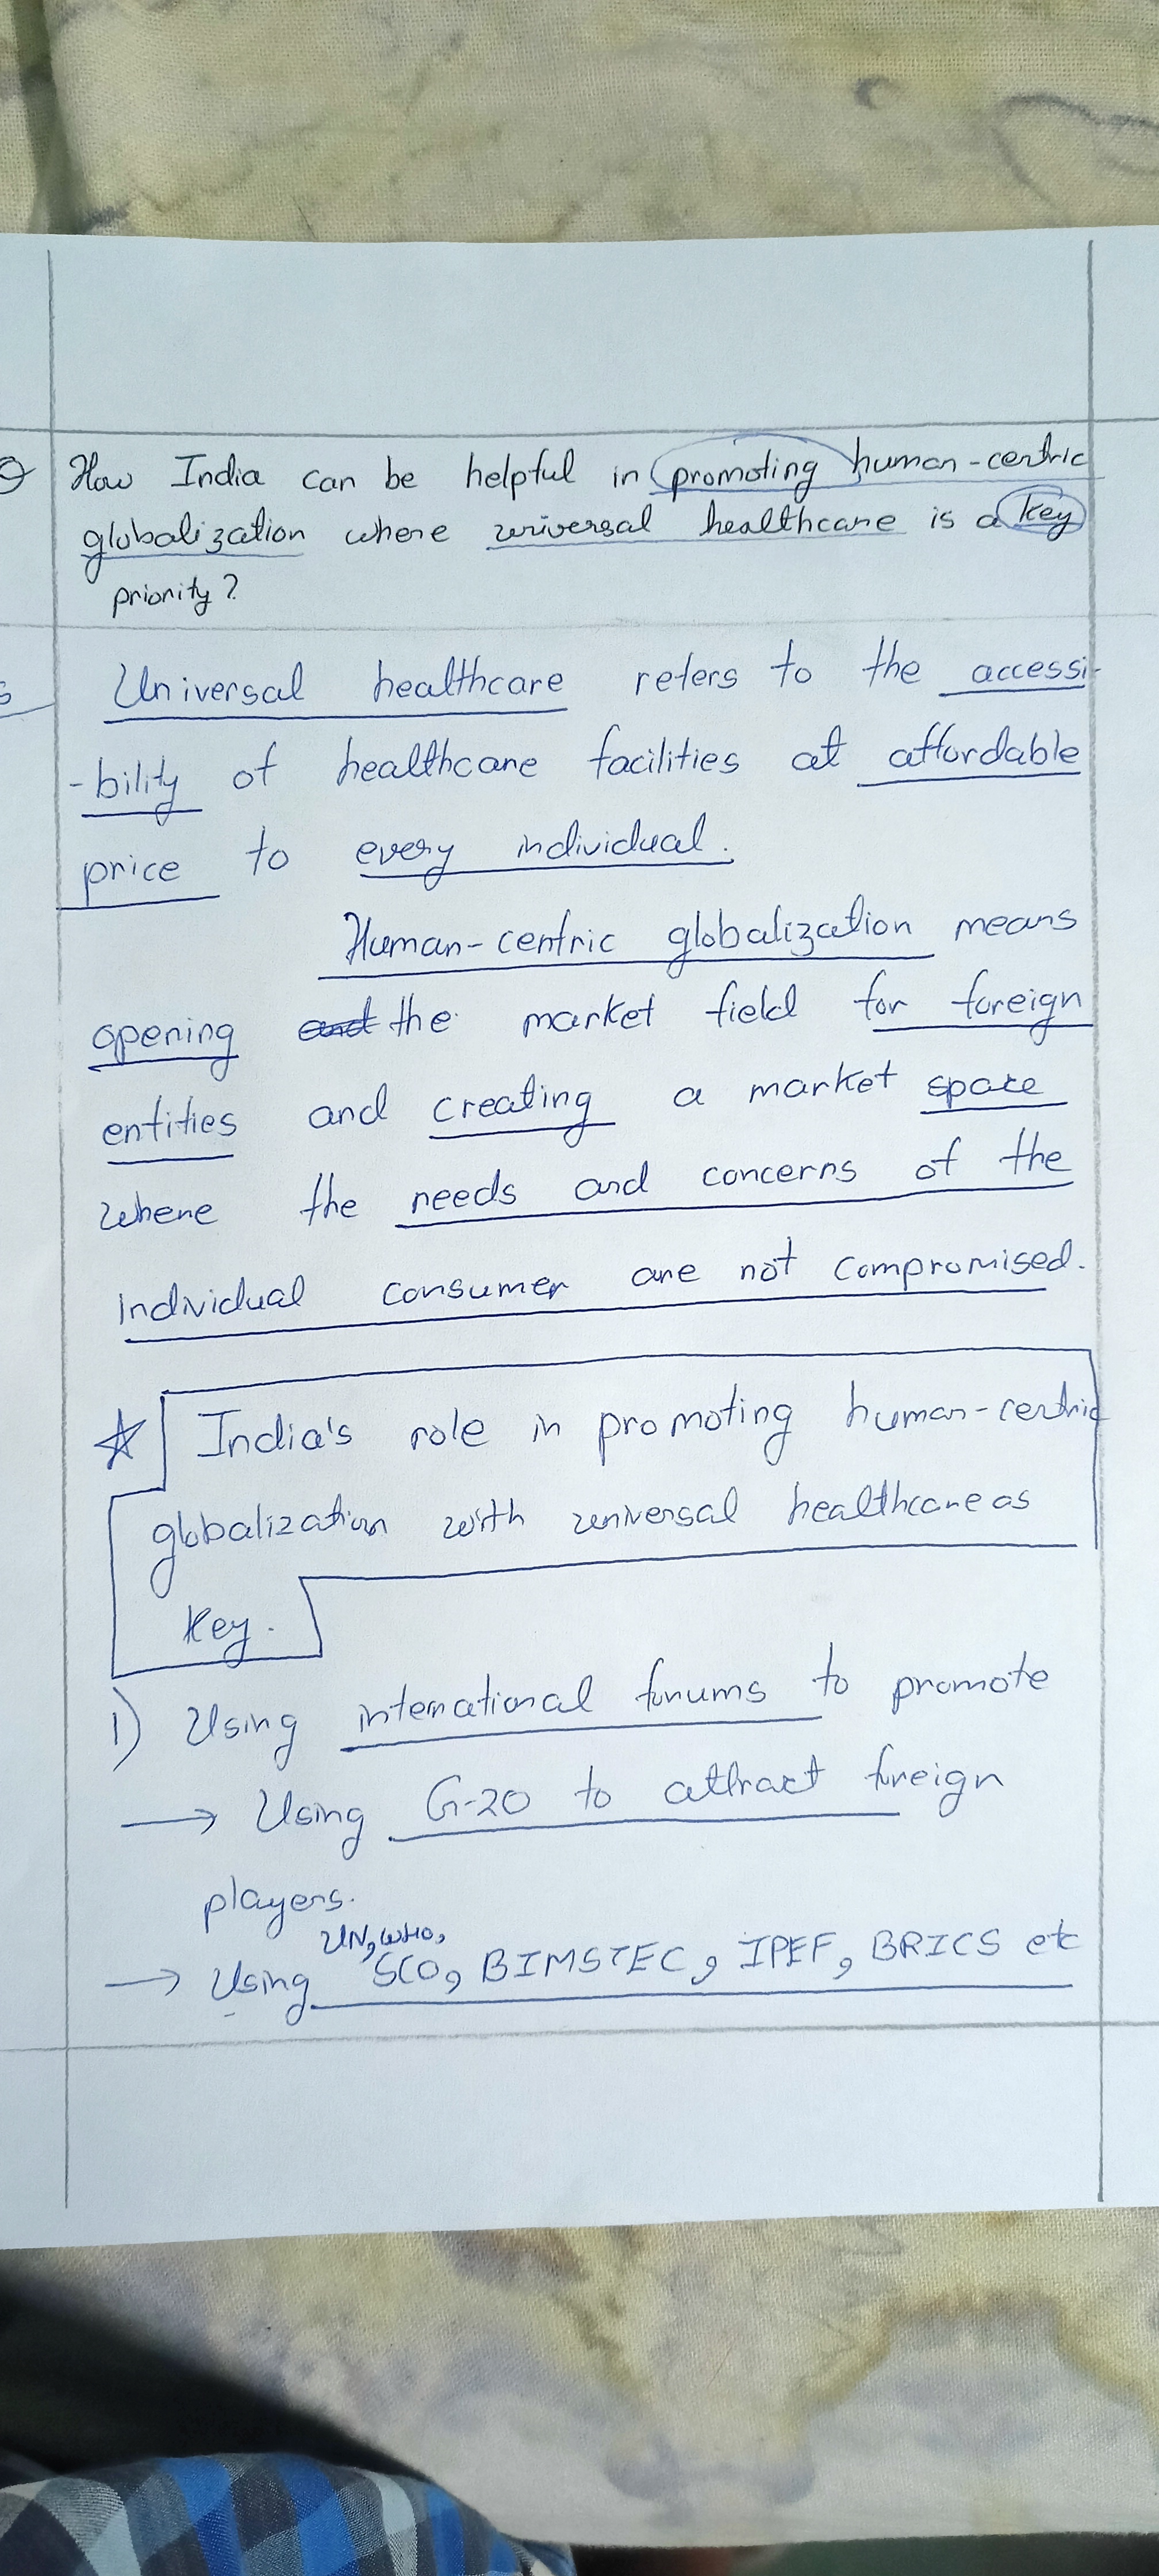 Q How India can be helpful in promoting human-centric
globalization where universal healthcare is a key
priority?
Universal healthcare refers to the accessi-
-bility of healthcare facilities at affordable
price to every individual.
Human-centric globalization means
opening and the market field for foreign
entities and creating a market space
where the needs and concerns of the
individual consumer are not compromised.
☆ India's role in promoting human-centric
globalization with universal healthcare as
key.
1) Using international forums to promote
→ Using G-20 to attract foreign
players.
UN, WHO,
→ Using SCO, BIMSTEC, IPEF, BRICS etc